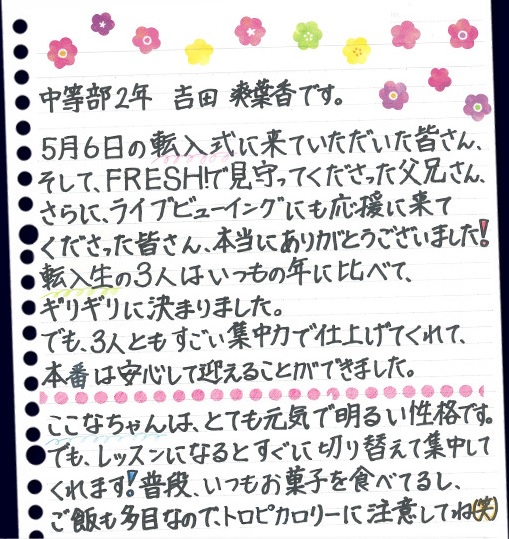 中等部2年 吉田 爽葉香です。
5月6日の転入式に来ていただいた皆さん、
そして、FRESH!で見守ってくださった父兄さん、
さらに、ライブビューイングにも応援に来て
くださった皆さん、本当にありがとうございました!
転入生の3人はいつもの年に比べて、
ギリギリに決まりました。
でも、3人ともすごい集中力で仕上げてくれて、
本番は安心して迎えることができました。
ここなちゃんは、とても元気で明るい性格です。
でも、レッスンになるとすぐに切り替えて集中して
くれます!普段、いつもお菓子を食べてるし、
ご飯も多目なので、トロピカロリーに注意してね(笑)